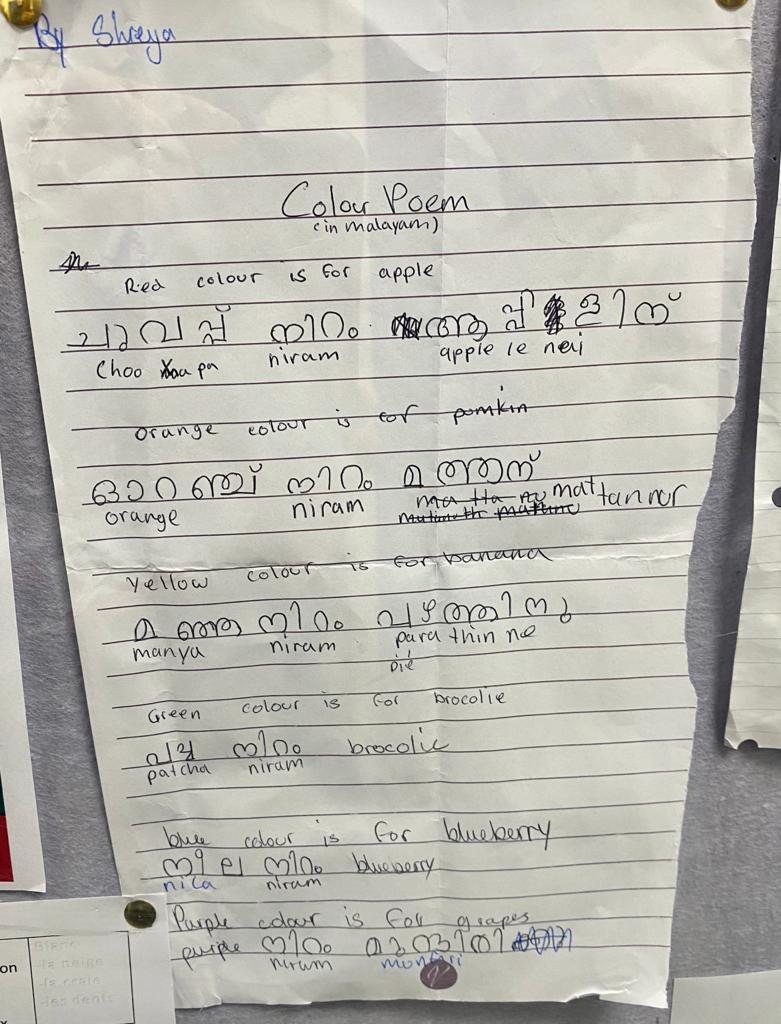 By Shreya
Colour Poem
(in malayam)
Red colour is for apple
ചുവപ്പ് നിറം ആപ്പിളിന്
Choo pa niram apple le neij
orange colour is for pumkin
ഓറഞ്ച് നിറം മത്തന്
orange niram mattannor
yellow colour is for banana
മഞ്ഞ നിറം പഴത്തിനു
manya niram para thin ne
Green colour is for brocolie
പച്ച നിറം brocolie
patcha niram
blue colour is for blueberry
നീല നിറം blueberry
nila niram
Purple colour is for grapes
purple നിറം മുന്തിരി
niram monfari
on
Blanc
la neige
la craie
les dents